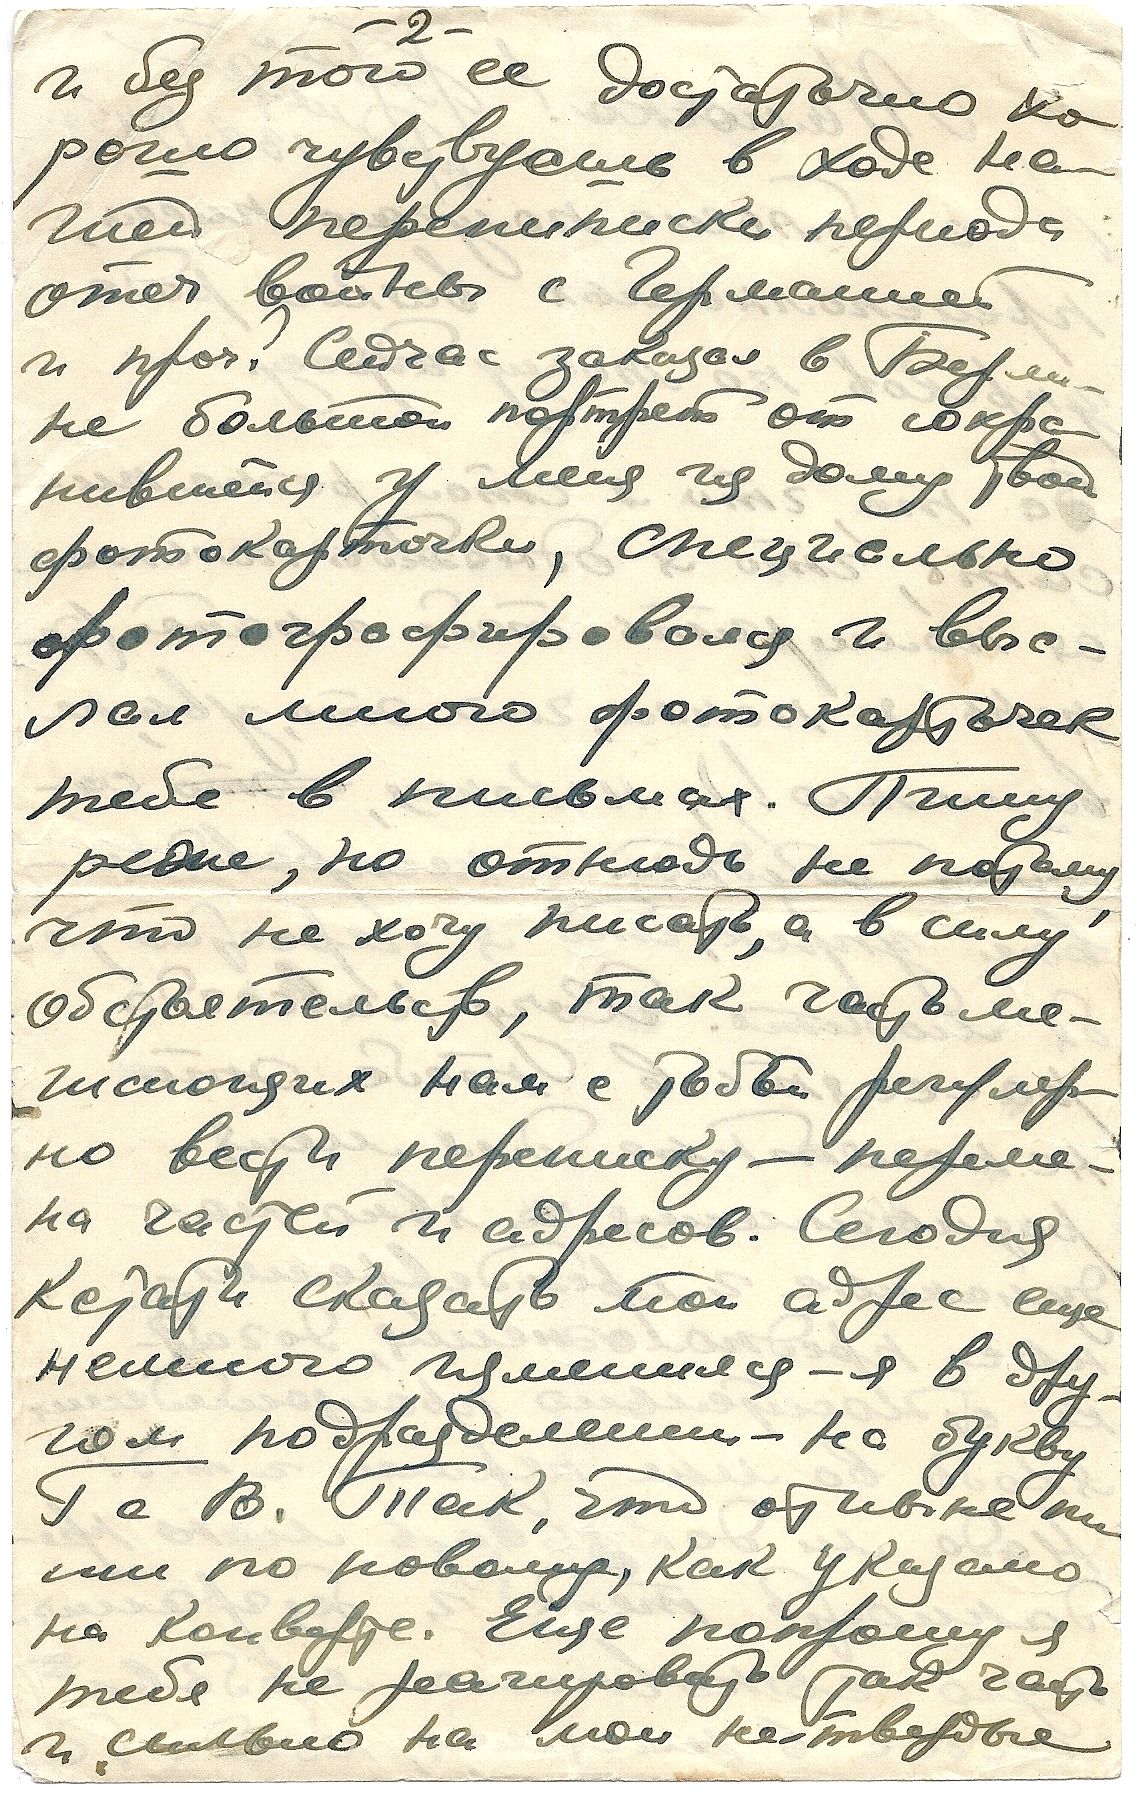 -2-
и без того ее достаточно хо
рошо чувствуешь в ходе на-
шей переписки периода
отеч войны с Германией
и проч? Сейчас заказал в Берли-
не большой портрет от сохра-
нившейся у меня из дому твоей
фотокарточки, специально
фотографировался и выс-
лал много фотокарточек
тебе в письмах. Пишу
редко, но отнюдь не потому,
что не хочу писать, а в силу
обстоятельств, так часто ме-
шающих нам с тобой регуляр-
но вести переписку — переме-
на частей и адресов. Сегодня
кстати сказать мой адрес еще
немного изменился - я в дру-
гом подразделении - на букву
Г а В. Так, что отныне пи
ши по новому, как указано
на конверте. Еще попрошу я
тебя не реагировать так часто
и сильно на мои не-твердые